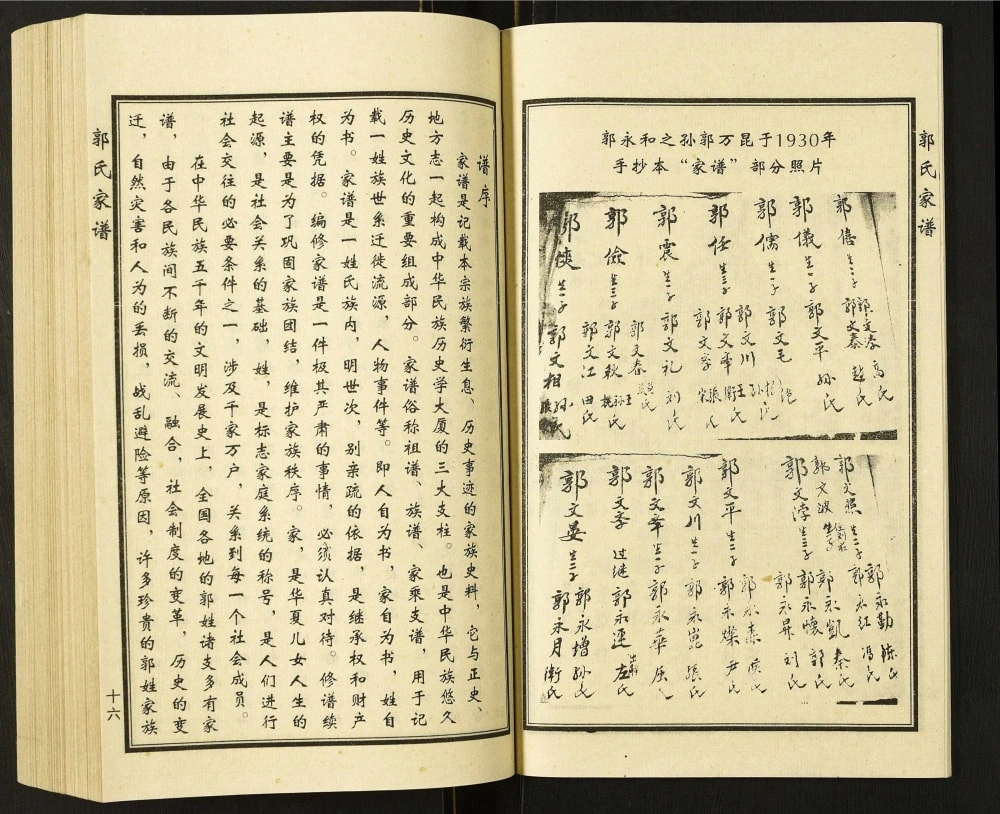 郭氏家谱
郭永和之孙郭万昆于1930年
手抄本“家谱”部分照片
郭僖 生二子 郭文涛 高氏
郭文泰 赵氏
郭儀 生一子 郭文平 孙氏
郭儒 生一子 郭文毛
郭任 生三子 郭文川 王氏
郭文举 衛氏
郭文孝 張氏 宋氏
郭震 生一子 郭文礼 刘氏
郭俭 生三子 郭文春
郭文秋 孙氏
郭文江 田氏
郭侠 生一子 郭文相 孙氏
郭文照 生二子 郭永勤 陈氏
郭永红 冯氏
郭文波 生一子 郭永凯 秦氏
郭文淳 生二子 郭永懷 郭氏
郭永昇 刘氏
郭文平 生二子 侯氏
郭永燦 尹氏
郭文川 生一子 郭永崑 張氏
郭文举 生一子 郭永華
郭文孝 过继 郭永連 左氏
郭文晏 生二子 郭永增 孙氏
郭永月 衛氏
谱序
家谱是记载本宗族繁衍生息、历史事迹的家族史料，它与正史、
地方志一起构成中华民族历史学大厦的三大支柱。也是中华民族悠久
历史文化的重要组成部分。家谱俗称祖谱、族谱、家乘支谱，用于记
载一姓族世系迁徙流源，人物事件等。即人自为书，家自为书，姓自
为书。家谱是一姓氏族内，明世次，别亲疏的依据，是继承权和财产
权的凭据。编修家谱是一件极其严肃的事情，必须认真对待。修谱续
谱主要是为了巩固家族团结，维护家族秩序。家，是华夏儿女人生的
起源，是社会关系的基础，姓，是标志家庭系统的称号，是人们进行
社会交往的必要条件之一，涉及千家万户，关系到每一个社会成员。
在中华民族五千年的文明发展史上，全国各地的郭姓诸支多有家
谱，由于各民族间不断的交流、融合，社会制度的变革，历史的变
迁，自然灾害和人为的丢损，战乱避险等原因，许多珍贵的郭姓家族
郭氏家谱
十六